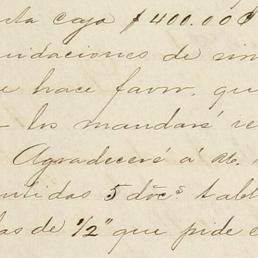 caja $400.000
idaciones de
e hace favor, que
los mandaré
Agradeceré á
5 docs tabl
as de 1/2" que pide